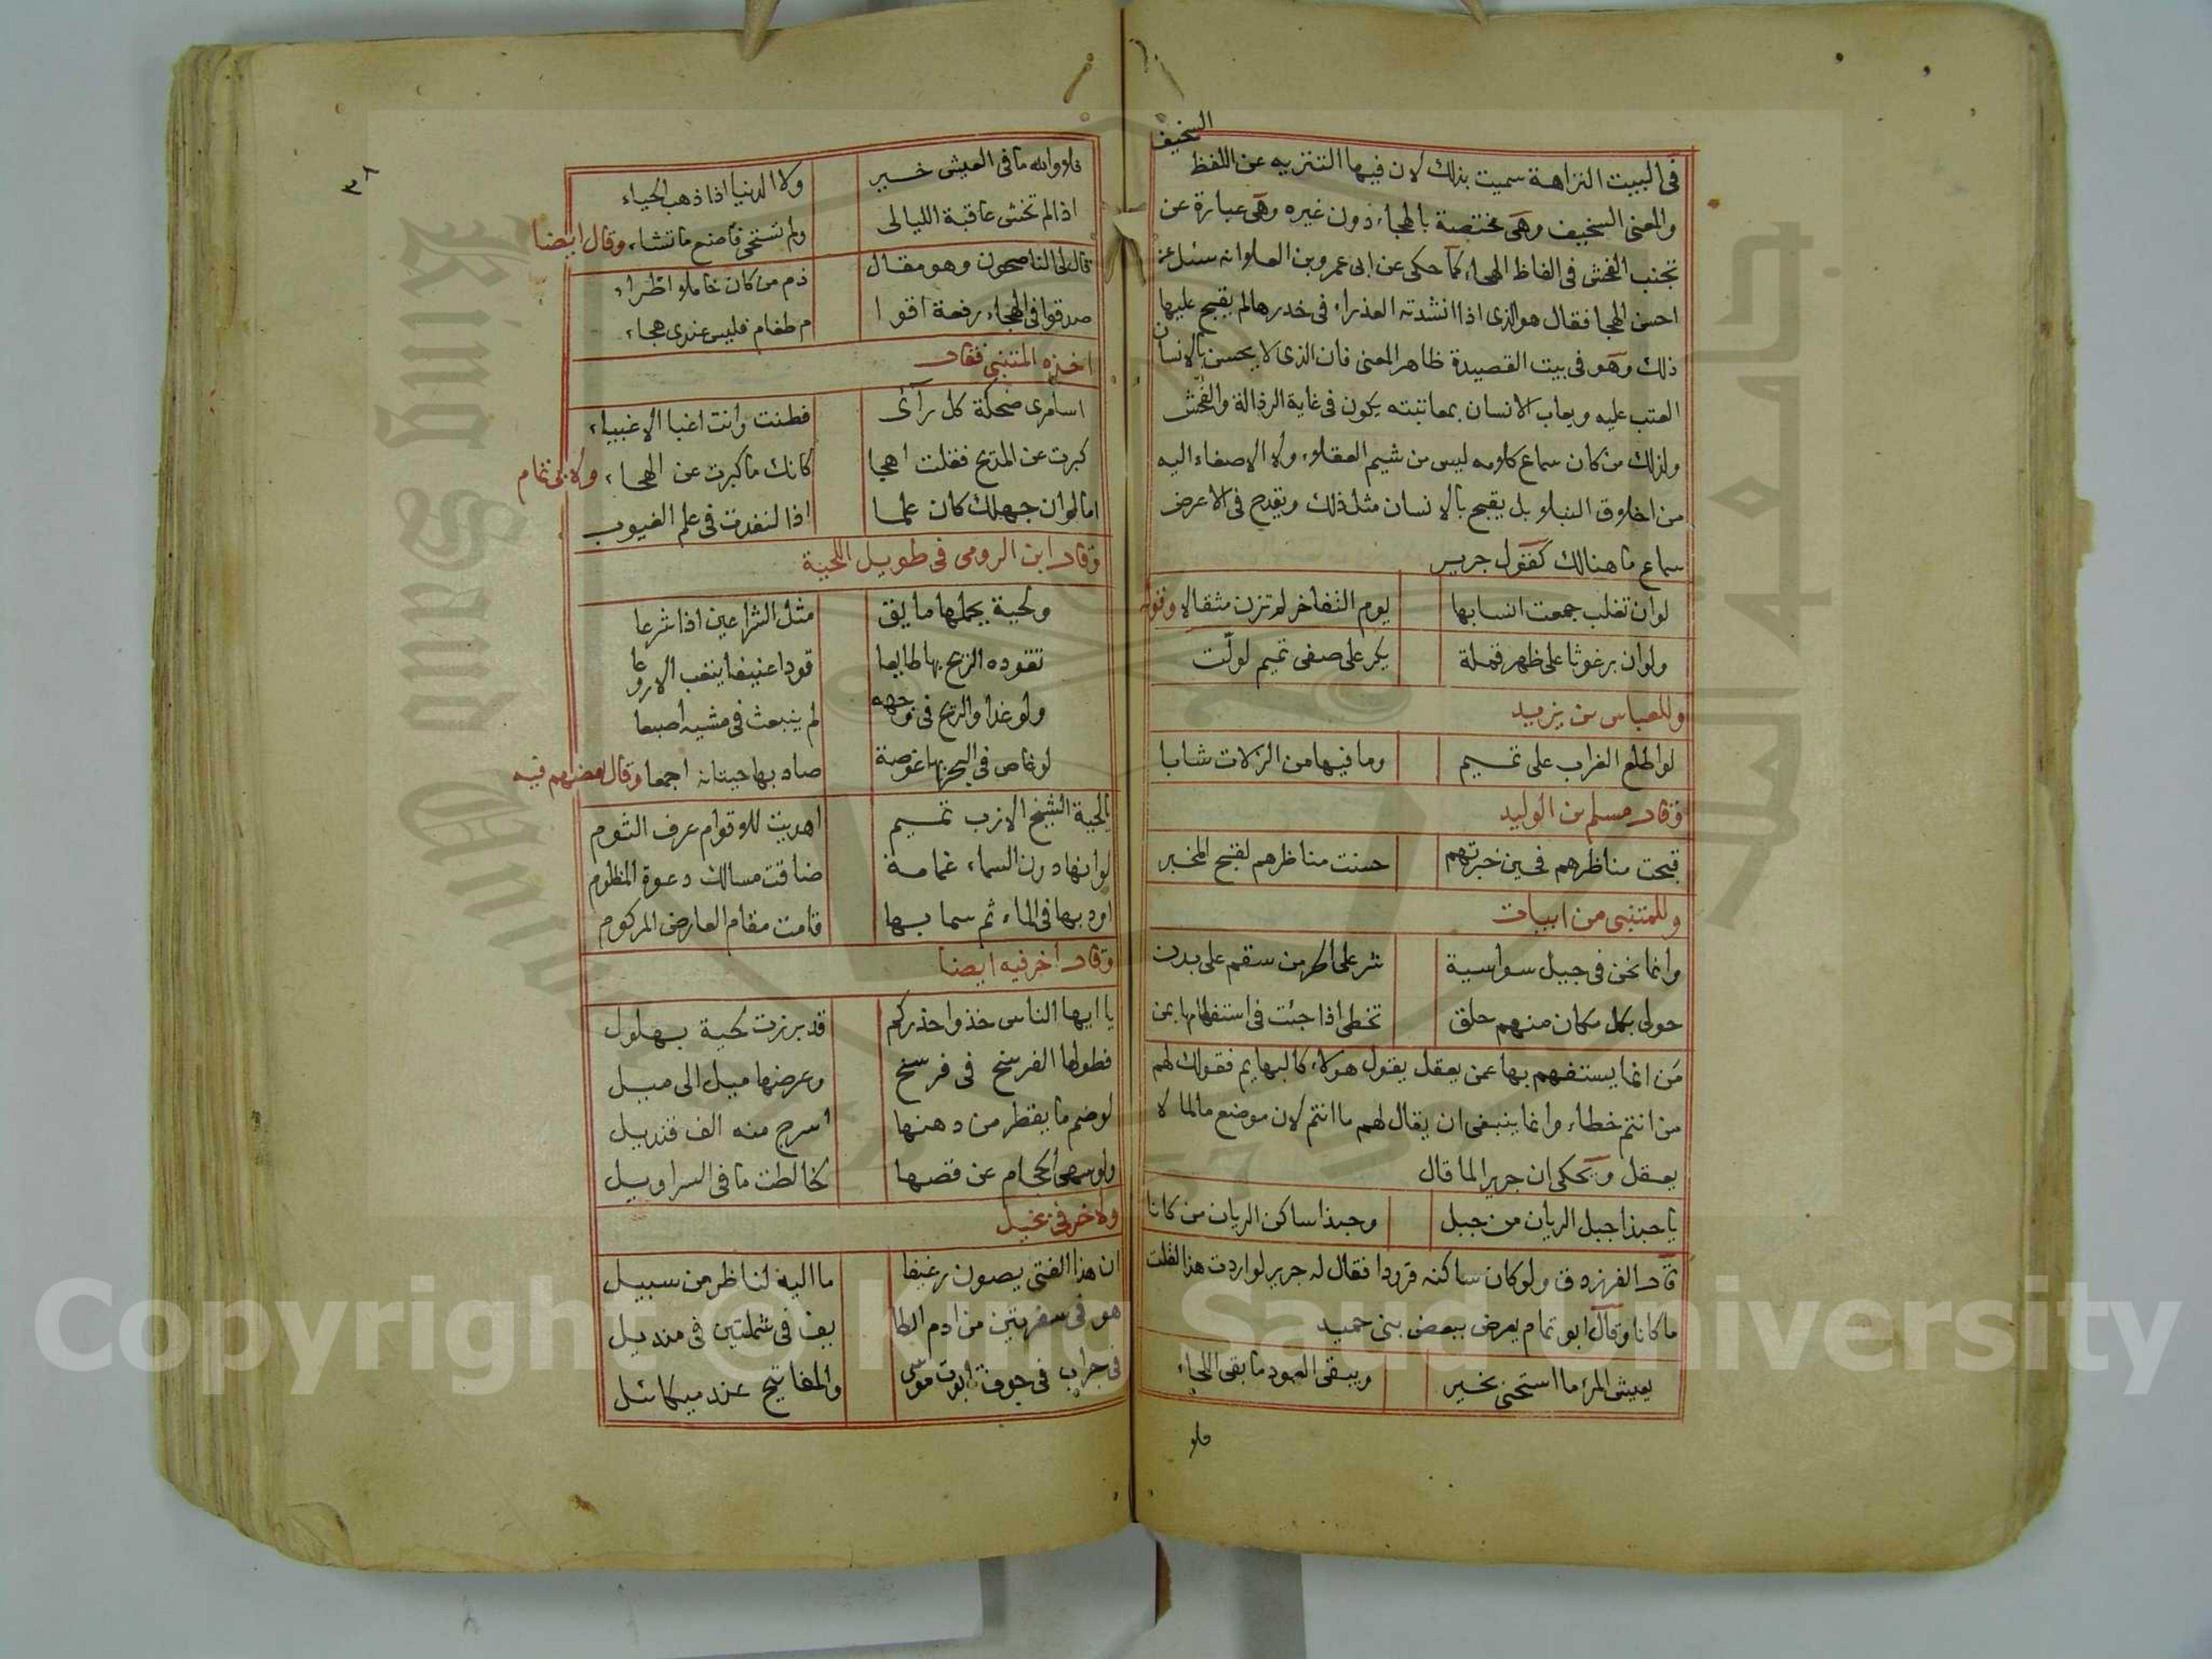 السخيف
فى البيت النزاهة سميت بذلك لان فيها التنزيه عن اللفظ
والمعنى السخيف وهى مختصة بالهجاء دون غيره وهى عبارة عن
تجنب الفحش فى الفاظ الهجاء كما حكى عن ابى عمرو بن العلا وانه سئل عن
احسن الهجا فقال هو الذى اذا انشدته العذراء فى خدرها لم يقبح عليها
ذلك وهو فى بيت القصيدة ظاهر المعنى فان الذى لا يحسن بالانسان
العتب عليه ويعاب الانسان بمعاتبته يكون فى غاية الرذالة والفحش
ولذلك من كان سماع كلامه ليس من شيم العقلاء ولا الاصغاء اليه
من اخلاق النبلا بل يقبح بالانسان مثل ذلك ويقدح فى الاعرض
سماع ما هنالك كقول جرير
لو ان تغلب جمعت انسابها يوم التفاخر لم تزن مثقالا وقوله
ولو ان برغوثا على ظهر قملة يكر على صفى تميم لولّت
وللعباس بن يزيد
لو اطلع الغراب على تميم وما فيها من الزلات شابا
وقال مسلم بن الوليد
قبحت مناظرهم فحين خبرتهم حسنت مناظرهم لقبح المخبر
وللمتنبى من ابيات
وانما نحن فى جيل سواسية شر على الحر من سقم على بدن
حولى بكل مكان منهم حلق تخطى اذا جئت فى استفهامها بمن
من انما يستفهم بها عمن يعقل يقول هولاء كالبهايم فقولك لهم
من انتم خطاء وانما ينبغى ان يقال لهم ما انتم لان موضع ما لما لا
يعقل ويحكى ان جريرا لما قال
يا حبذا جبل الريان من جبل وحبذا ساكن الريان من كانا
قال الفرزدق ولو كان ساكنه قرودا فقال له جرير لو اردت هذا لقلت
ما كانا وقال ابو تمام يعرض ببعض بنى حميد
يعيش المرء ما استحيى بخير ويبقى العود ما بقى اللحاء
فلا
٣٨
فلا والله ما فى العيش خير ولا الدنيا اذا ذهب الحياء
اذا لم تخش عاقبة الليالى ولم تستحى فاصنع ما تشاء وقال ايضا
قال لى الناصحون وهو مقال ذم من كان خاملا اطراء
صدقوا فى الهجاء رفعة اقوا م طغام فليس عندى هجاء
اخذه المتنبى فقال
اسامرى ضحكة كل رآئ فطنت وانت اغبا الاغبياء
كبرت عن المديح فقلت اهجا كانك ما كبرت عن الهجاء ولابى تمام
اما لو ان جهلك كان علما اذا لنفدت فى علم الغيوب
وقال ابن الرومى فى طويل اللحية
ولحية يحملها مايق مثل الشراعين اذا شرعا
تقوده الريح بها طايعا قودا عنيفا يتعب الاروعا
ولو غدا والريح فى وجهه لم ينبعث فى مشيه اصبعا
لو غاص فى البحر بها غوصة صاد بها حيتانه اجمعا وقال بعضهم فيه
يا لحية الشيخ الازب تميم اهديت للاقوام عرف الثوم
لو انها دون السماء غمامة ضاقت مسالك دعوة المظلوم
اودى بها فى الماء ثم سما بها قامت مقام العارض المركوم
وقال اخر فيه ايضا
يا ايها الناس خذوا حذركم قد برزت لحية بهلول
فطولها الفرسخ فى فرسخ وعرضها ميل الى ميل
لو ضم ما يقطر من دهنها اسرج منه الف قنديل
ولو سهى الحجام عن قصها لخالطت ما فى السراويل
ولاخر فى بخيل
ان هذا الفتى يصون رغيفا ما اليه لناظر من سبيل
هو فى سفرتين من ادم الطا يف فى شملتين فى منديل
فى جراب فى جوف تابوت موسى والمفاتيح عند ميكائل
King Saud University
Copyright © King Saud University